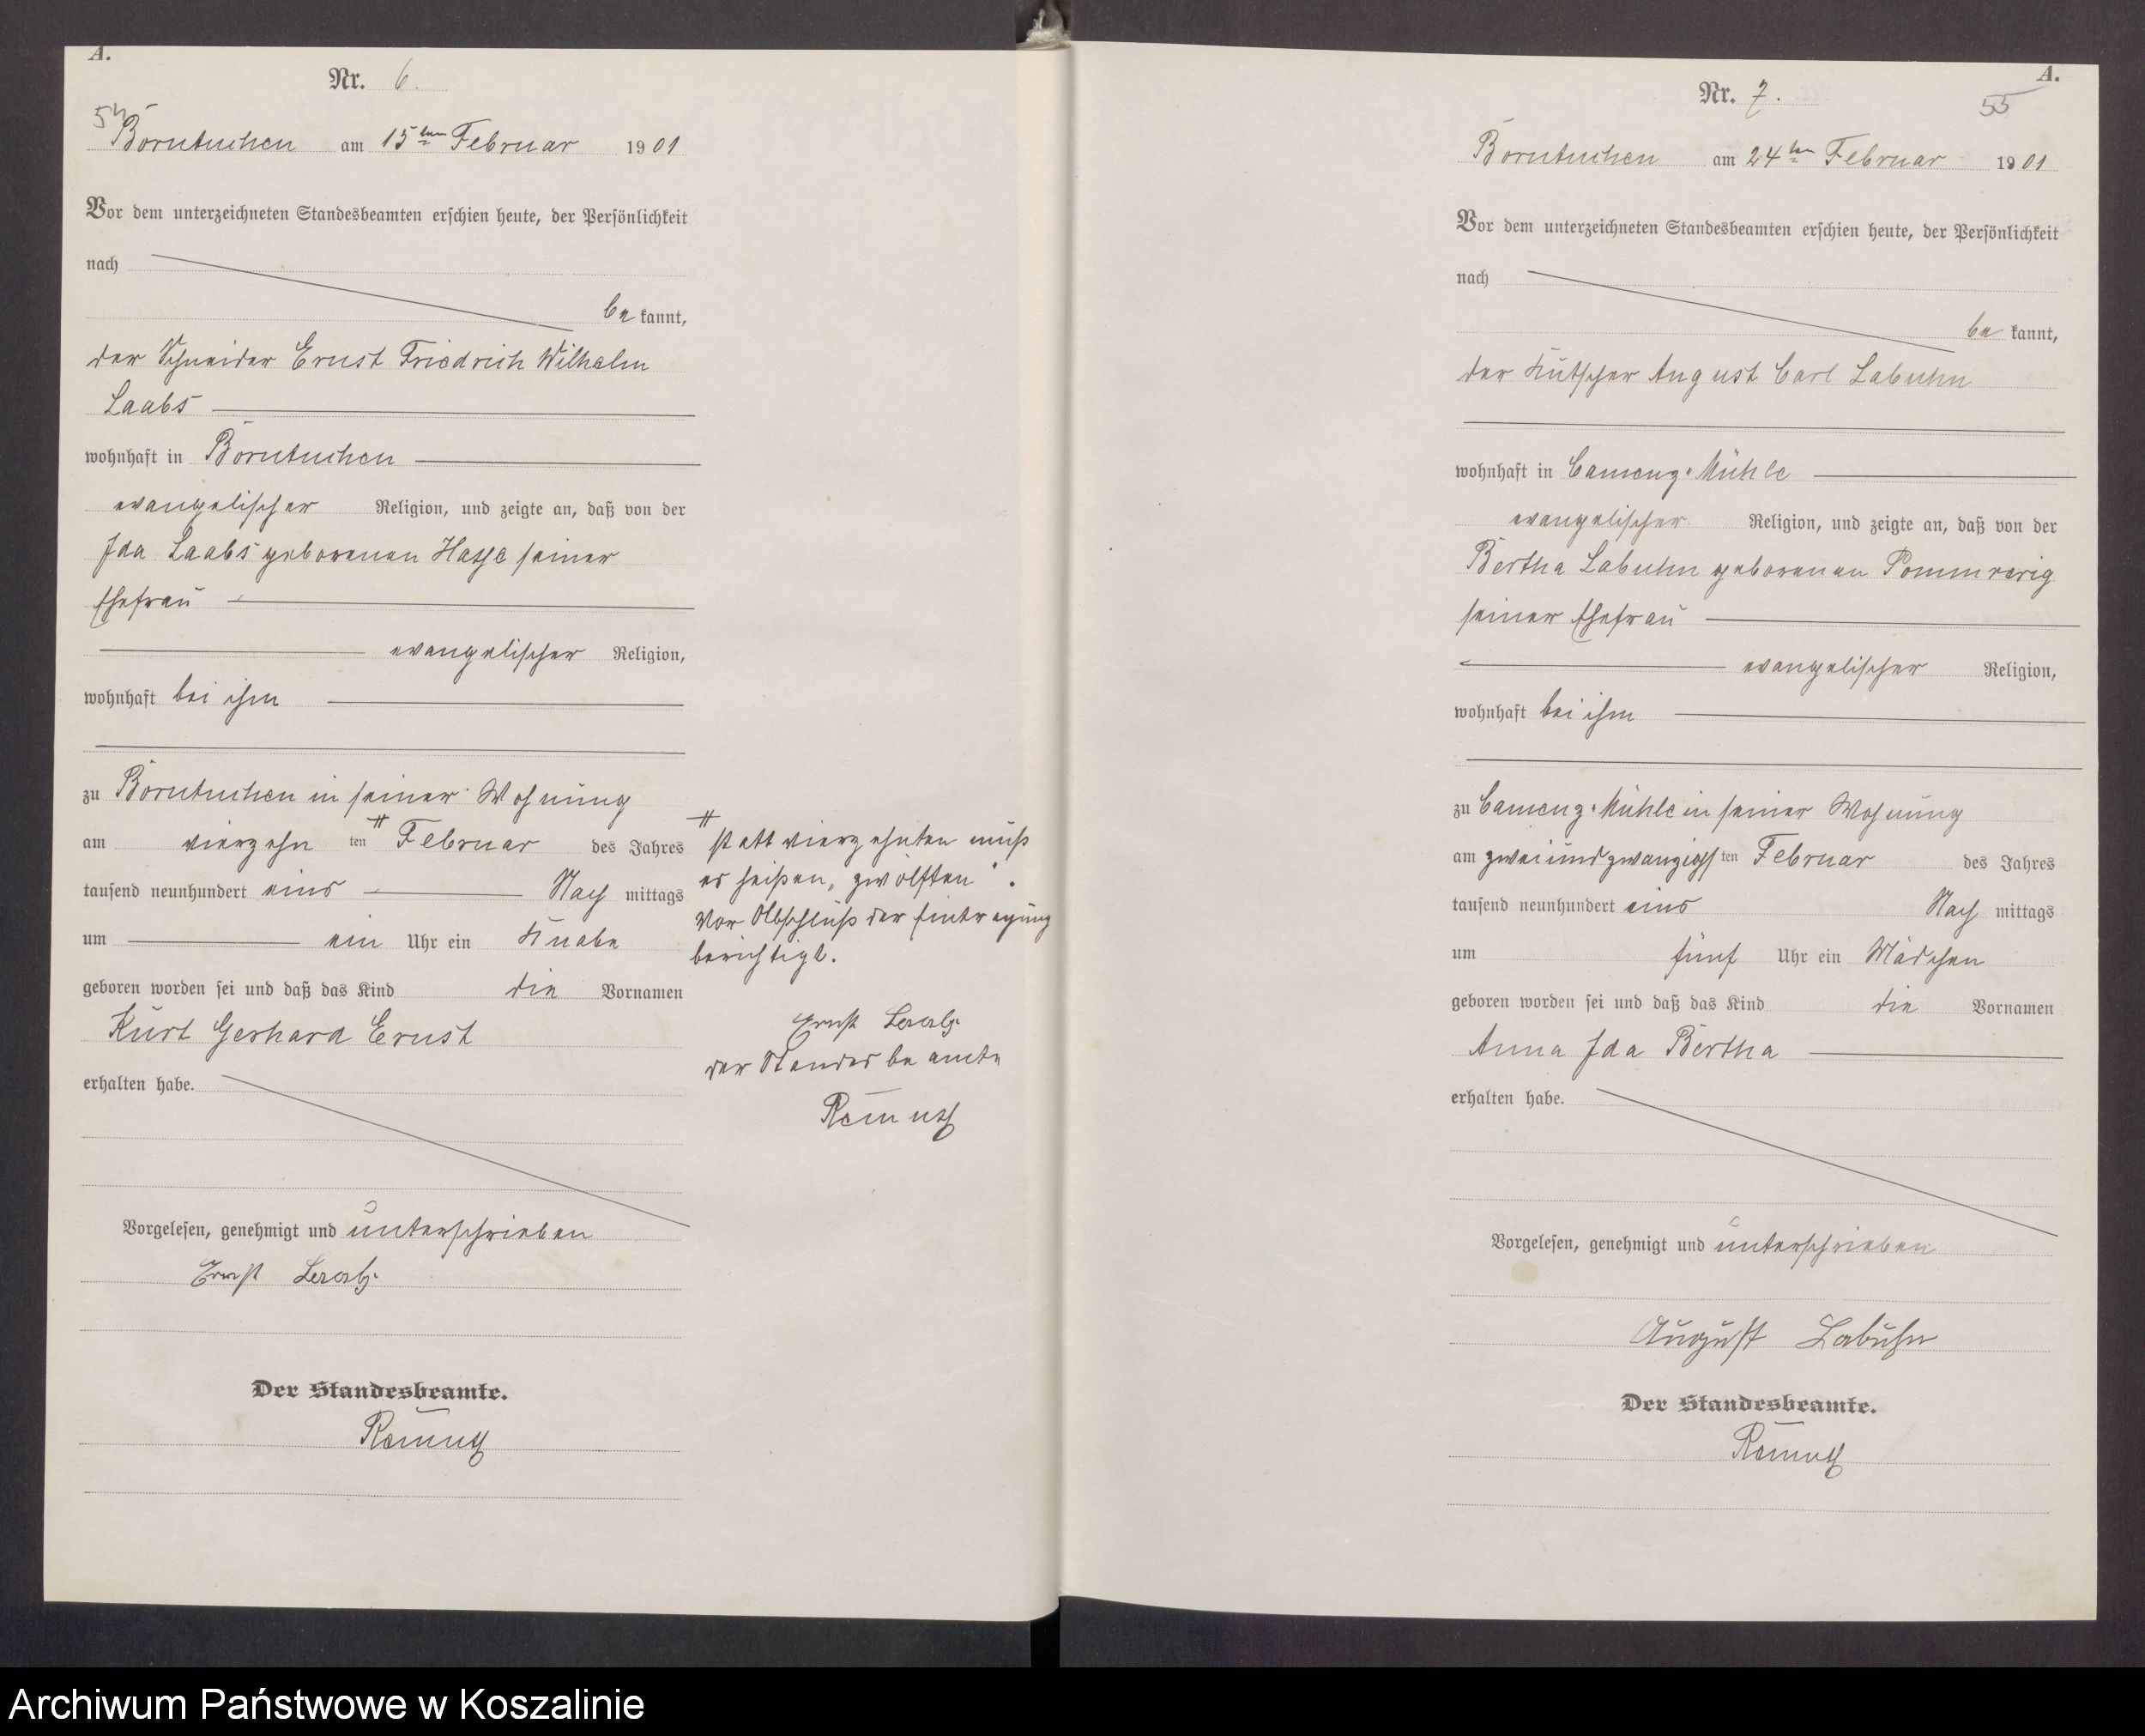 A.
Nr. 6.
54
Borntuchen am 15ten Februar 1901
Vor dem unterzeichneten Standesbeamten erschien heute, der Persönlichkeit
nach
be kannt,
der Schneider Ernst Friedrich Wilhelm
Laabs
wohnhaft in Borntuchen
evangelischer Religion, und zeigte an, daß von der
Ida Laabs geborenen Hasse seiner
Ehefrau
evangelischer Religion,
wohnhaft bei ihm
zu Borntuchen in seiner Wohnung
am vierzehn ten # Februar des Jahres
tausend neunhundert eins Nach mittags
um ein Uhr ein Knabe
geboren worden sei und daß das Kind die Vornamen
Kurt Gerhard Ernst
erhalten habe.
Vorgelesen, genehmigt und unterschrieben
Ernst Laabs.
Der Standesbeamte.
Remus
#
statt vierzehnten muß
es heißen „zwölften“.
Vor Abschluß der Eintragung
berichtigt.
Ernst Laabs.
der Standesbeamte
Remus
A.
Nr. 7.
55
Borntuchen am 24ten Februar 1901
Vor dem unterzeichneten Standesbeamten erschien heute, der Persönlichkeit
nach
be kannt,
der Kutscher August Carl Labuhn
wohnhaft in Camenz-Mühle
evangelischer Religion, und zeigte an, daß von der
Bertha Labuhn geborenen Pommrerig
seiner Ehefrau
evangelischer Religion,
wohnhaft bei ihm
zu Camenz-Mühle in seiner Wohnung
am zweiundzwanzigsten Februar des Jahres
tausend neunhundert eins Nach mittags
um fünf Uhr ein Mädchen
geboren worden sei und daß das Kind die Vornamen
Anna Ida Bertha
erhalten habe.
Vorgelesen, genehmigt und unterschrieben
August Labuhn
Der Standesbeamte.
Remus
Archiwum Państwowe w Koszalinie